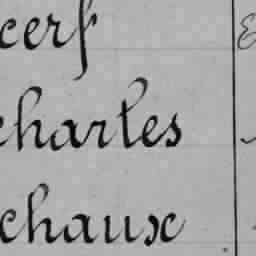 cerf
charles
chaux